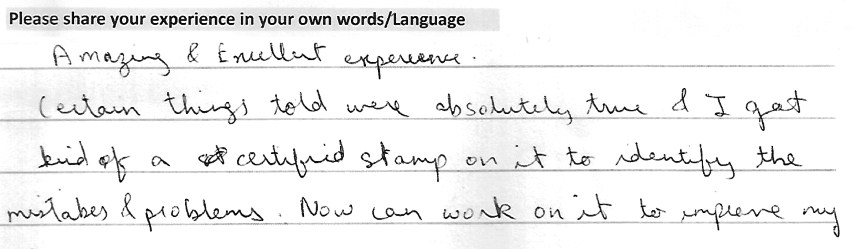 Please share your experience in your own words/Language
Amazing & Excellent experience.
Certain things told were absolutely true & I got
kind of a certified stamp on it to identify the
mistakes & problems. Now can work on it to improve my